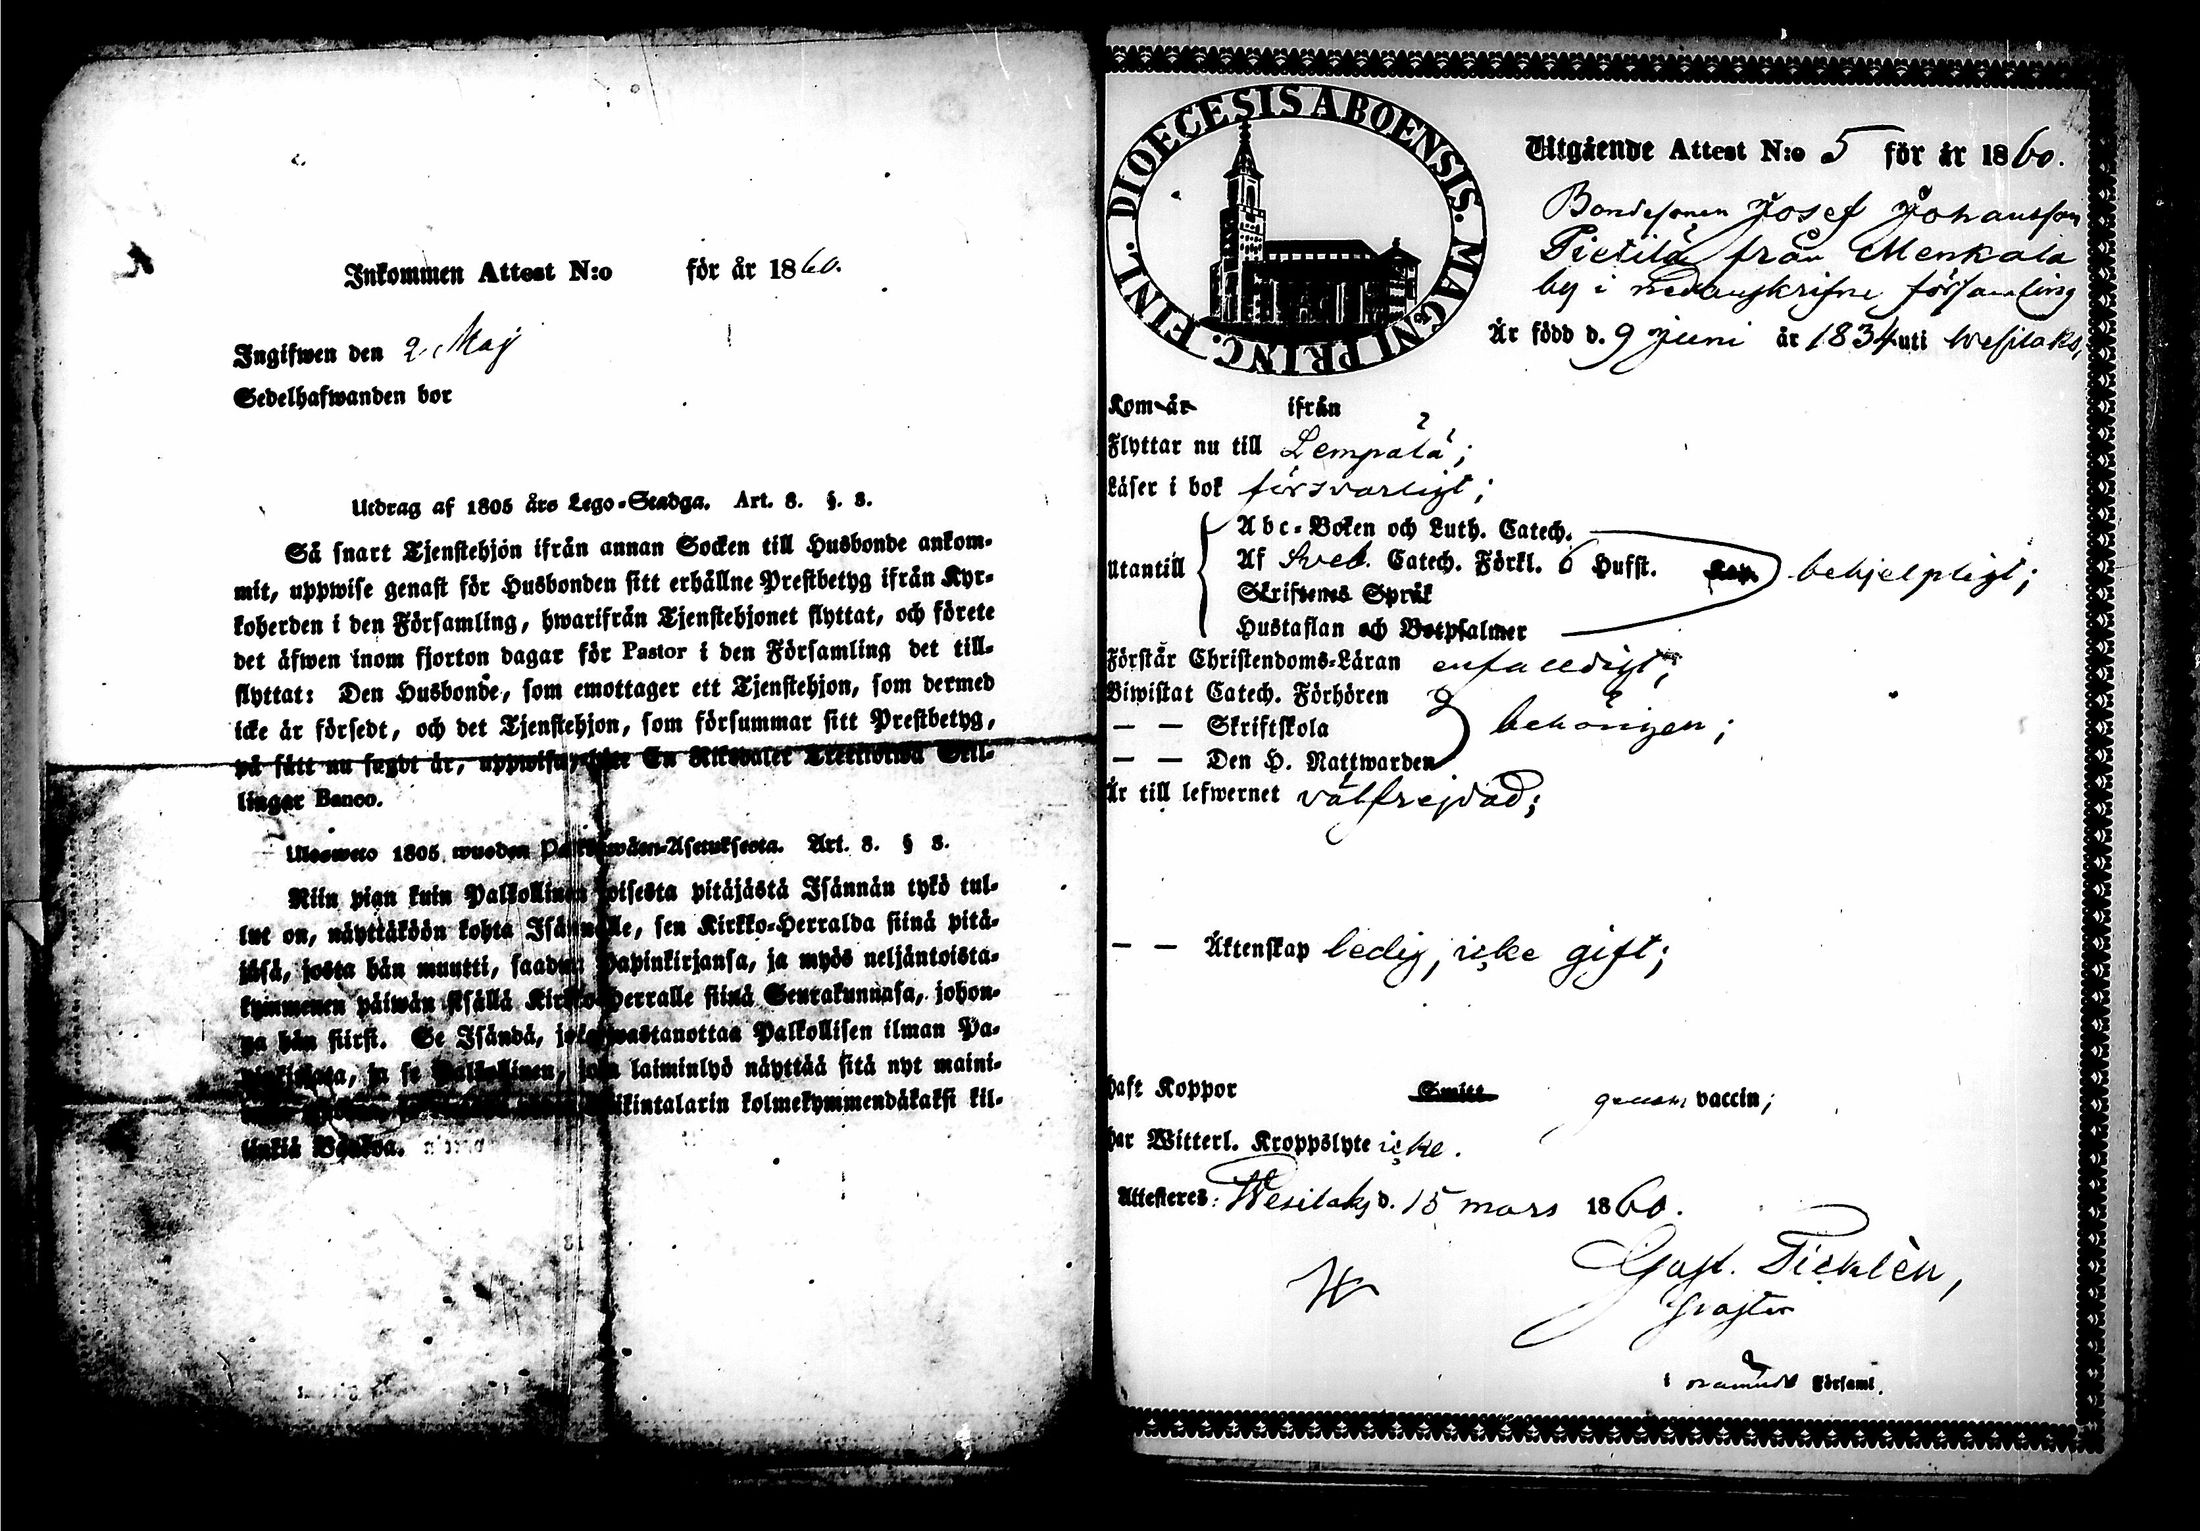 Inkommen Attest N:o för år 1860.
Ingifwen den 2 Maj
Sedelhafwanden bor
Utdrag af 1805 års Lego-Stadga. Art. 8. §. 3.
Så snart Tjenstehjon ifrån annan Socken till Husbonde ankom-
mit, uppwise genast för Husbonden sitt erhållne Prestbetyg ifrån Kyr-
koherden i den Församling, hwarifrån Tjenstehjonet flyttat, och förete
det äfwen inom fjorton dagar för Pastor i den Församling det till-
flyttat: Den Husbonde, som emottager ett Tjenstehjon, som dermed
icke är försedt, och det Tjenstehjon, som försummar sitt Prestbetyg,
på sätt nu sagdt är, uppwisa, böte En Riksdaler Trettiotwå Skil-
lingar Banco.
Ulosweto 1805 wuoden Palkkawäen-Asetuksesta. Art. 8. § 3.
Niin pian kuin Palkollinen toisesta pitäjästä Isännän tykö tul-
lut on, näyttäköön kohta Isännälle, sen Kirkko-Herralda siinä pitä-
jäsä, josta hän muutti, saadun Papinkirjansa, ja myös neljäntoista-
kymmenen päiwän sisällä Kirkko-Herralle siinä Seurakunnasa, johon-
ga hän siirsi. Se Isändä, joka wastanottaa Palkollisen ilman Pa-
pinkirjata, ja se Palkollinen, joka laiminlyö näyttää sitä nyt maini-
kintalarin kolmekymmendäkaksi kil-
linkiä Bankoa.
DIOECESIS ABOENSIS. MAGNI PRINC. FINL.
Utgående Attest N:o 5 för år 1860.
Bondesonen Josef Johansson
Pietilä från Menkala
by i nedanskrifne församling
Är född d. 9 Juni år 1834 uti Wesilaks,
Kom år ifrån
Flyttar nu till Lempälä;
Läser i bok försvarligt;
Utantill
Abc-Boken och Luth. Catech.
Af Sveb. Catech. Förkl. 6 Hufst. Kap. behjelpligt;
Skriftenes Språk
Hustaflan och Botpsalmer
Förstår Christendoms-Läran enfalldigt;
Biwistat Catech. Förhören
— — Skriftskola behörigen;
— — Den H. Nattwarden
Är till lefwernet välfrejdad;
— — Äktenskap ledig, icke gift;
haft Koppor Smitt genom vaccin;
har Witterl. Kroppslyte icke.
Attesteres: Wesilaks d. 15 mars 1860.
Gust.
i nämnde Församl.